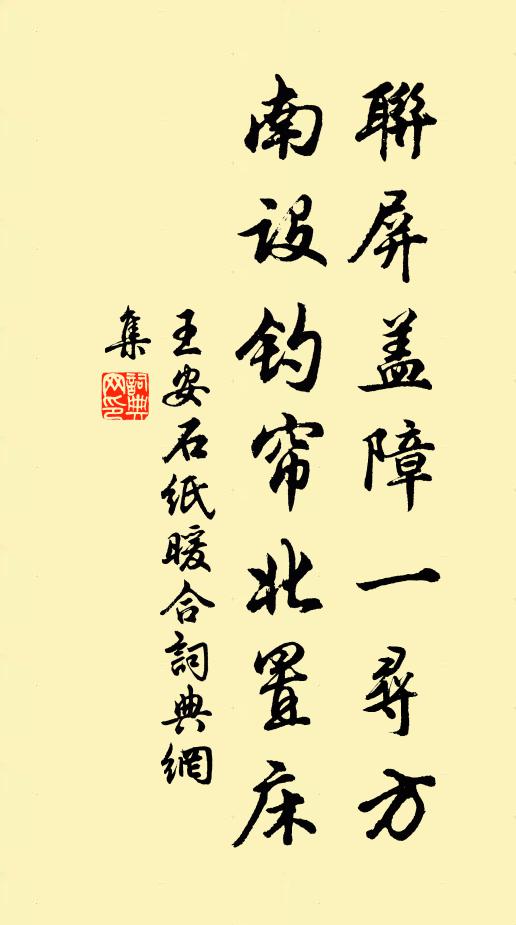 聯屏盖障一尋方
南设钓帘北置床
王安石纸暖合詞典網
集
詞典网印